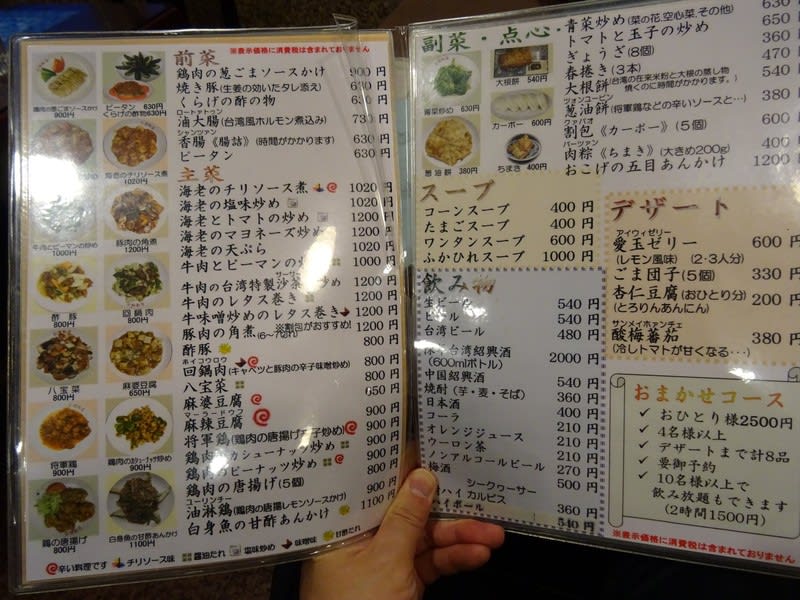 前菜
※表示価格に消費税は含まれておりません
鶏肉の葱ごまソースかけ 900円
焼き豚(生姜の効いたタレ添え) 630円
くらげの酢の物 630円
ロートァトワン
滷大腸(台湾風ホルモン煮込み) 730円
シャンツァン
香腸(腸詰)(時間がかかります) 630円
ピータン 630円
主菜
海老のチリソース煮 1020円
海老の塩味炒め 1020円
海老とトマトの炒め 1020円
海老のマヨネーズ炒め 1020円
海老の天ぷら 1020円
牛肉とピーマンの炒め 1000円
牛肉の台湾特製沙茶
牛肉のレタス巻き 1200円
牛味噌炒めのレタス巻き 1200円
※割包がおすすめ!
豚肉の角煮 1200円
酢豚 800円
ホイコウロウ
回鍋肉(キャベツと豚肉の辛子味噌炒め) 800円
八宝菜 800円
麻婆豆腐 650円
マーラードウフ
麻辣豆腐 900円
将軍鶏(鶏肉の唐揚げ 炒め) 900円
鶏肉のカシューナッツ炒め 900円
鶏肉のピーナッツ炒め 900円
鶏肉の唐揚げ(5個) 800円
ユーリンチー
油淋鶏(鶏肉の唐揚レモンソースかけ) 900円
白身魚の甘酢あんかけ 1100円
辛い料理です チリソース味 醤油だれ 塩味炒め 味噌味 甘酢だれ
鶏肉の葱ごまソースかけ
900円
ピータン 630円
くらげの酢物 630円
海老のチリソース煮
1020円
牛肉とピーマンの炒め
1000円
豚肉の角煮
1200円
酢豚
800円
回鍋肉
800円
八宝菜
800円
麻婆豆腐
650円
将軍鶏
900円
鶏肉のカシューナッツ炒め
900円
鶏の唐揚げ
800円
白身魚の甘酢あんかけ
1100円
副菜・点心
青菜炒め(菜の花,空心菜,その他) 630円
トマトと玉子の炒め 650円
ぎょうざ(8個) 360円
春捲き(3本) 470円
大根餅(台湾の在来米粉と大根の蒸し物 焼くのに時間がかかります) 540円
ツォンユーピン
葱油餅(将軍鶏などの辛いソースと…) 380円
クァパオ
割包《カーボー》(5個) 600円
バーツァン
肉粽《ちまき》(大きめ200g) 430円
おこげの五目あんかけ 1200円
青菜炒め 630円
大根餅 540円
カーボー 600円
葱油餅 380円
ちまき 430円
スープ
コーンスープ 400円
たまごスープ 400円
ワンタンスープ 600円
ふかひれスープ 1000円
飲み物
生ビール 540円
ビール 540円
台湾ビール 480円
台湾紹興酒
(600mlボトル) 2000円
中国紹興酒 540円
焼酎(芋・麦・そば) 360円
日本酒 400円
コーラ 210円
オレンジジュース 210円
ウーロン茶 210円
ノンアルコールビール 270円
梅酒 500円
シークヮーサー
ハイ カルピス 360円
ハイボール 540円
デザート
アイウィゼリー
愛玉ゼリー 600円
(レモン風味) (2・3人分)
ごま団子(5個) 330円
杏仁豆腐(おひとり分) 200円
(とろりんあんにん)
サンメイホァンチェ
酸梅蕃茄 380円
(冷しトマトが甘くなる…)
おまかせコース
✓ おひとり様2500円
✓ 4名様以上
✓ デザートまで計8品
✓ 要御予約
✓ 10名様以上で
飲み放題もできます
(2時間1500円)
※表示価格に消費税は含まれておりません